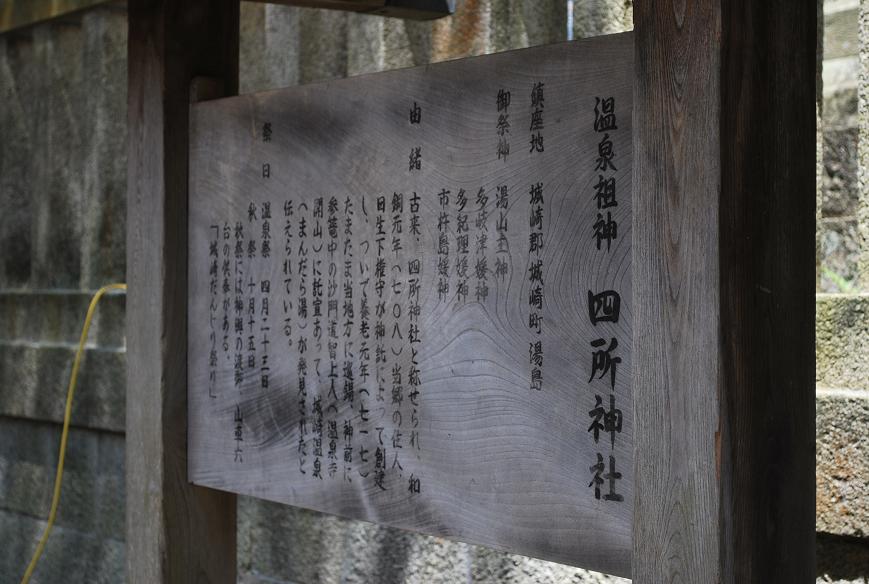 温泉祖神 四所神社
鎮座地 城崎郡城崎町湯島
御祭神 湯山主神
多岐津媛神
多紀理媛神
市杵島媛神
由緒 古来、四所神社と称せられ、和
銅元年(七〇八)当郷の住人、
日生下権守が神託によって創建
し、ついで養老元年(七一七)
たまたま当地方に巡錫、神前に
参篭中の沙門道智上人(温泉寺
開山)に託宣あって、城崎温泉
(まんだら湯)が発見されたと
伝えられている。
祭日 温泉祭 四月二十三日
秋祭 十月十五日
秋祭には神輿の渡御 山車六
台の供奉がある。
「城崎だんじり祭り」